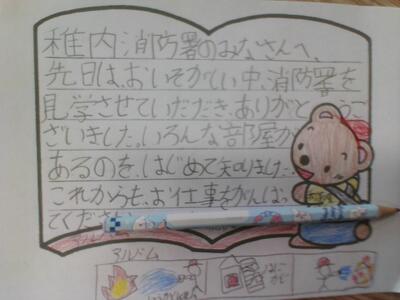 稚内消防署のみなさんへ、
先日は、おいそがしい中、消防署を
見学させていただき、ありがとうご
ざいました。いろんな部屋が
あるのを、はじめて知りました。
これからも、お仕事をがんばっ
てください
アルバム